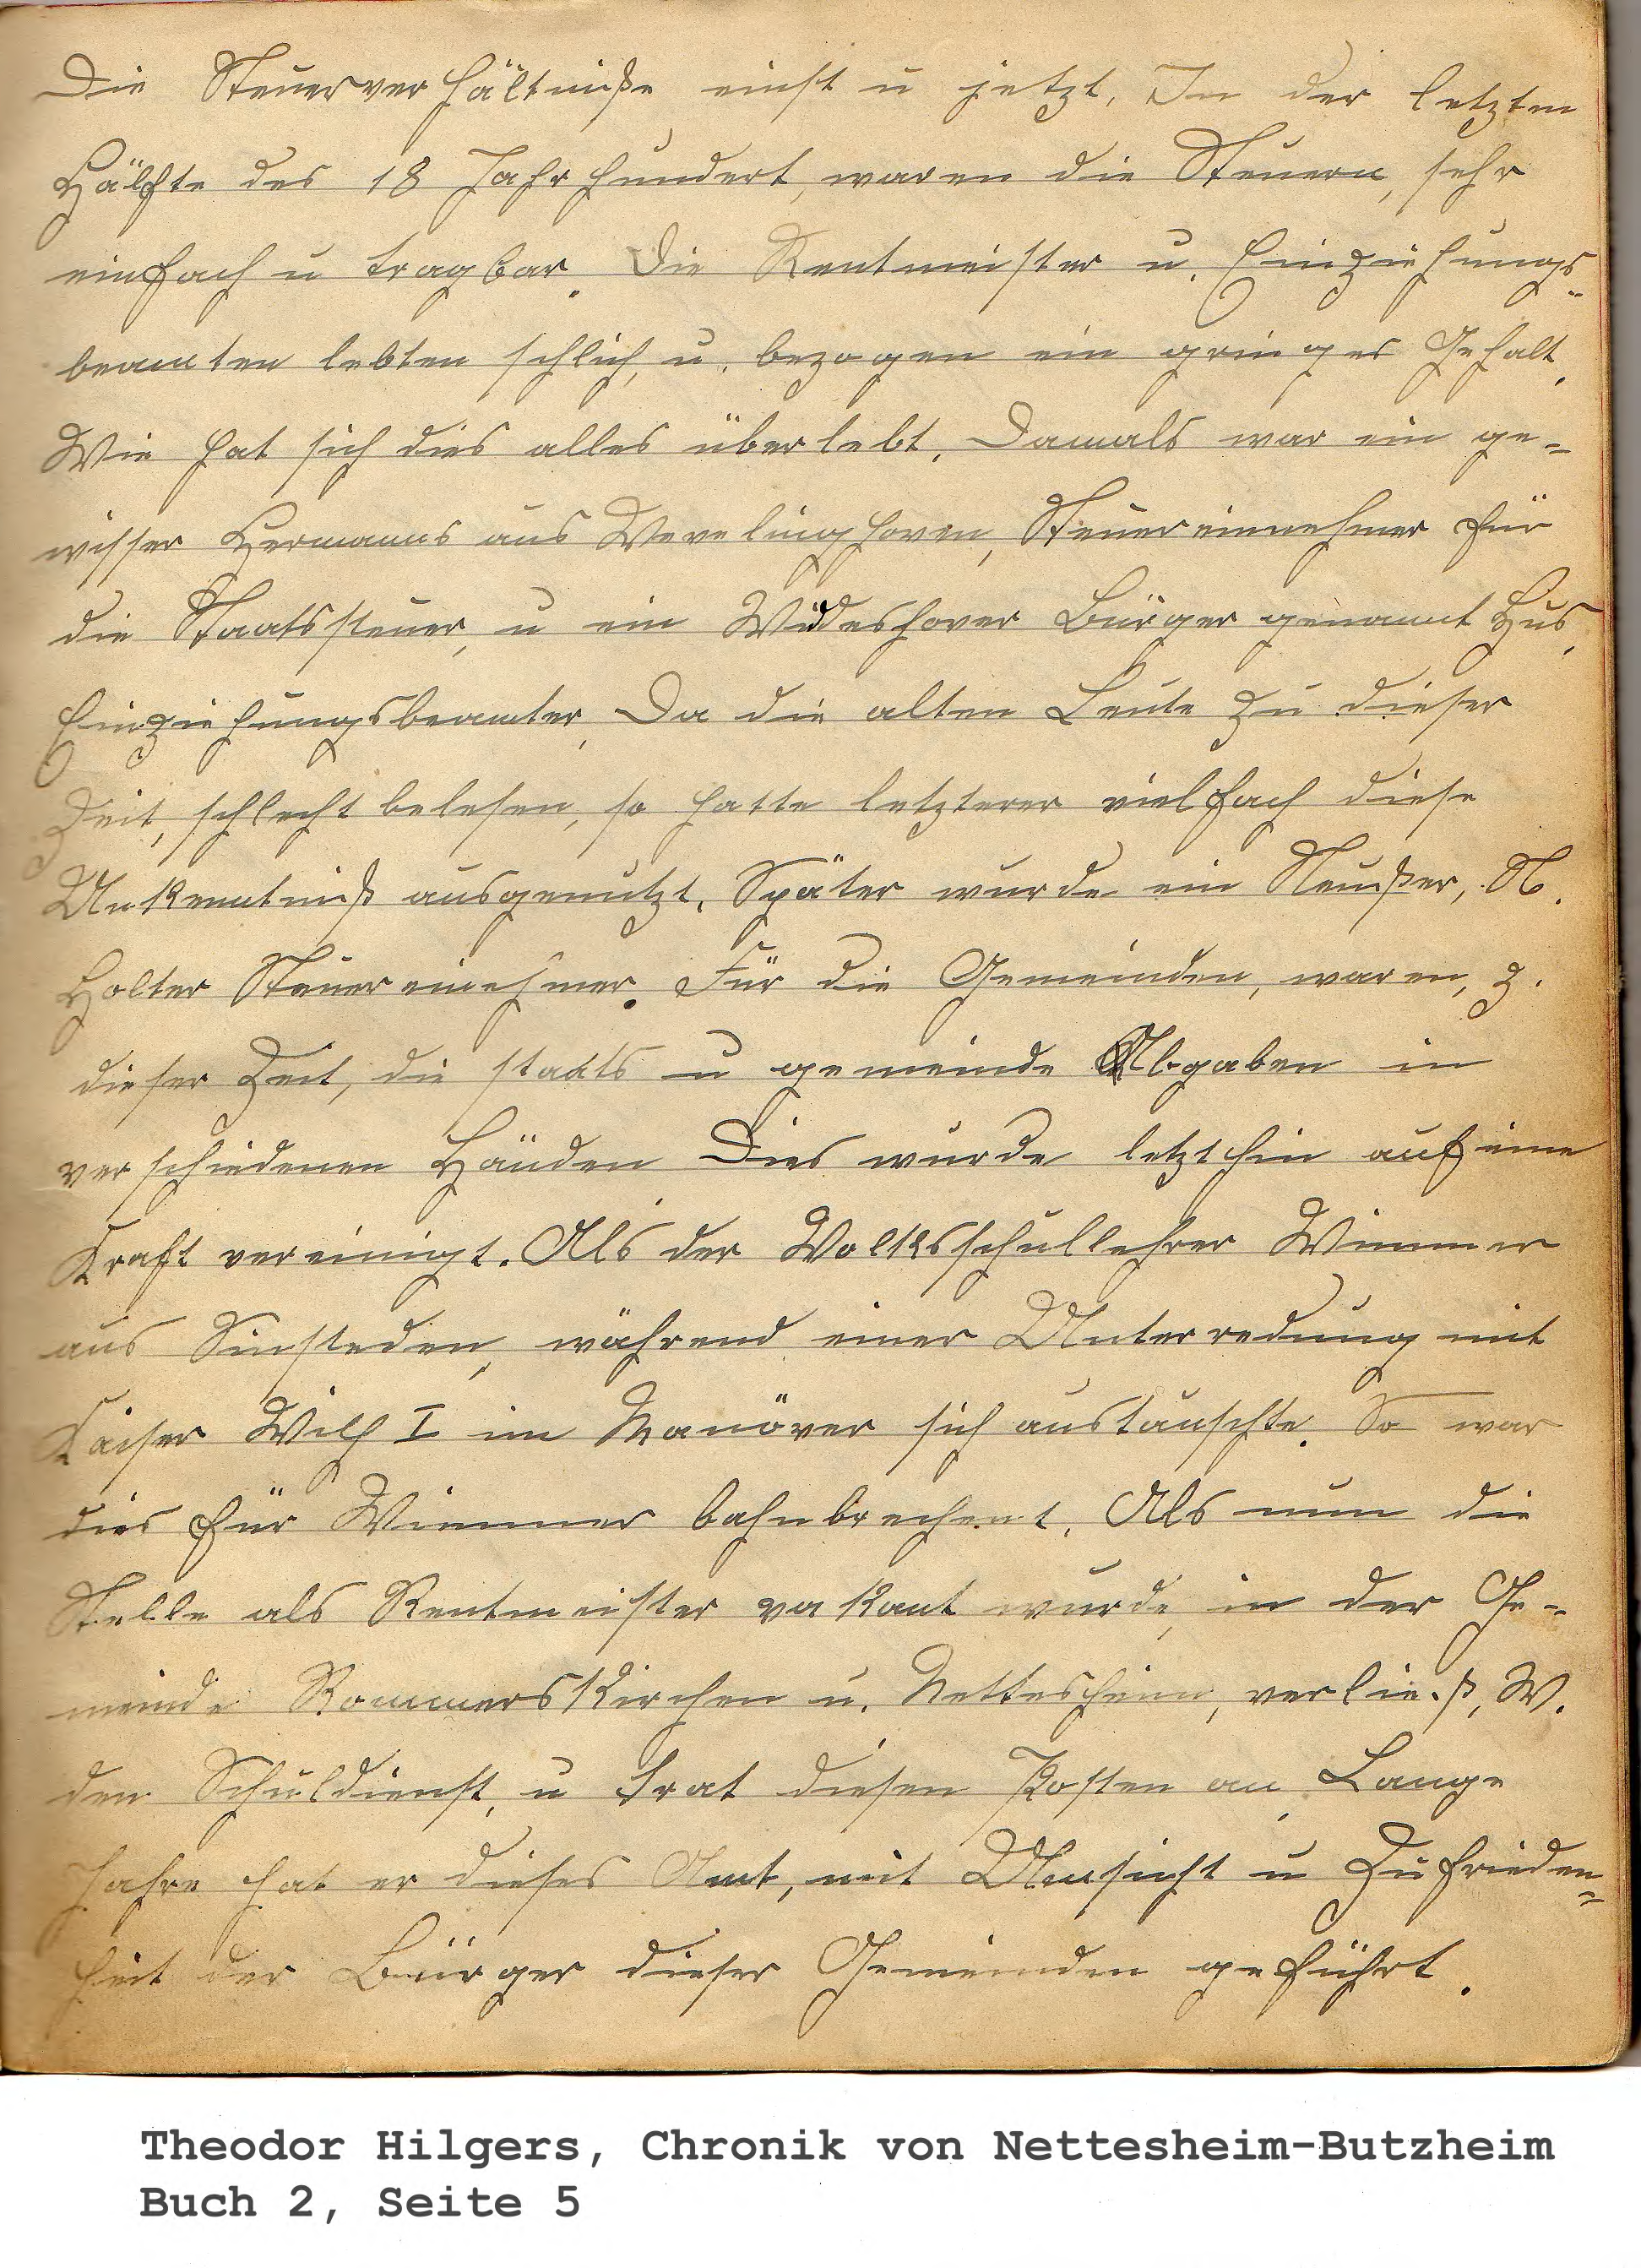 Die Steuerverhältniße einst u jetzt. In der letzten
Hälfte des 18 Jahrhundert, waren die Steuern, sehr
einfach u tragbar. Die Rentmeister u. Einziehungs-
beamten lebten schlich, u. bezogen ein gringes Gehalt.
Wie hat sich dies alles überlebt. Damals war ein ge-
wisser Hermanns aus Wevelinghoven, Steuereinnehmer für
die Staatssteuer, u ein Widdeshover Bürger genannt Hus,
Einziehungsbeamter. Da die alten Leute zu dieser
Zeit, schlecht belesen, so hatte letzterer vielfach diese
Unkenntniß ausgenutzt. Später wurde ein Neußer, N.
Holter Steuereinehmer. Für die Gemeinden, waren, z.
dieser Zeit, die staats u gemeinde Abgaben in
verschiedenen Händen Dies wurde letzthin auf eine
Kraft vereinigt. Als der Volksschullehrer Wimmer
aus Sinsteden, während einer Unterredung mit
Kaiser Wilh I im Manöver sich austauschte. So war
dies für Wimmer bahnbrechent. Als nun die
Stelle als Rentmeister vakant wurde, in der Ge-
meinde Rommerskirchen u. Nettesheim, verließ, W.
den Schuldienst, u trat diesen Posten an. Lange
Jahre hat er dieses Amt, mit Umsicht u Zufrieden-
heit der Bürger dieser Gemeinden geführt.
Theodor Hilgers, Chronik von Nettesheim-Butzheim
Buch 2, Seite 5